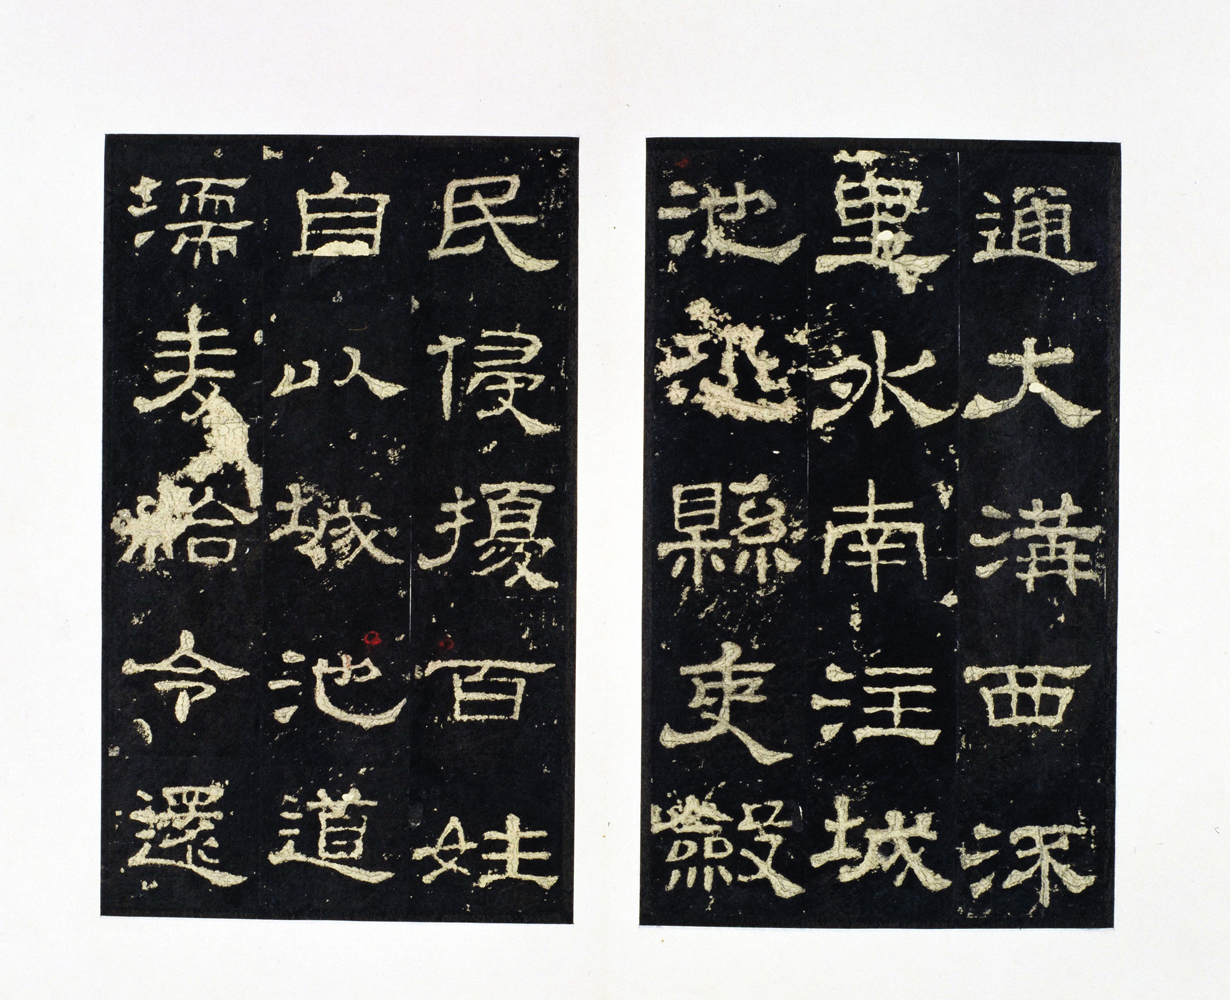 通大溝西流
里外南注城
池恐縣吏斂
民侵擾百姓
自以城池道
濡麥給令還